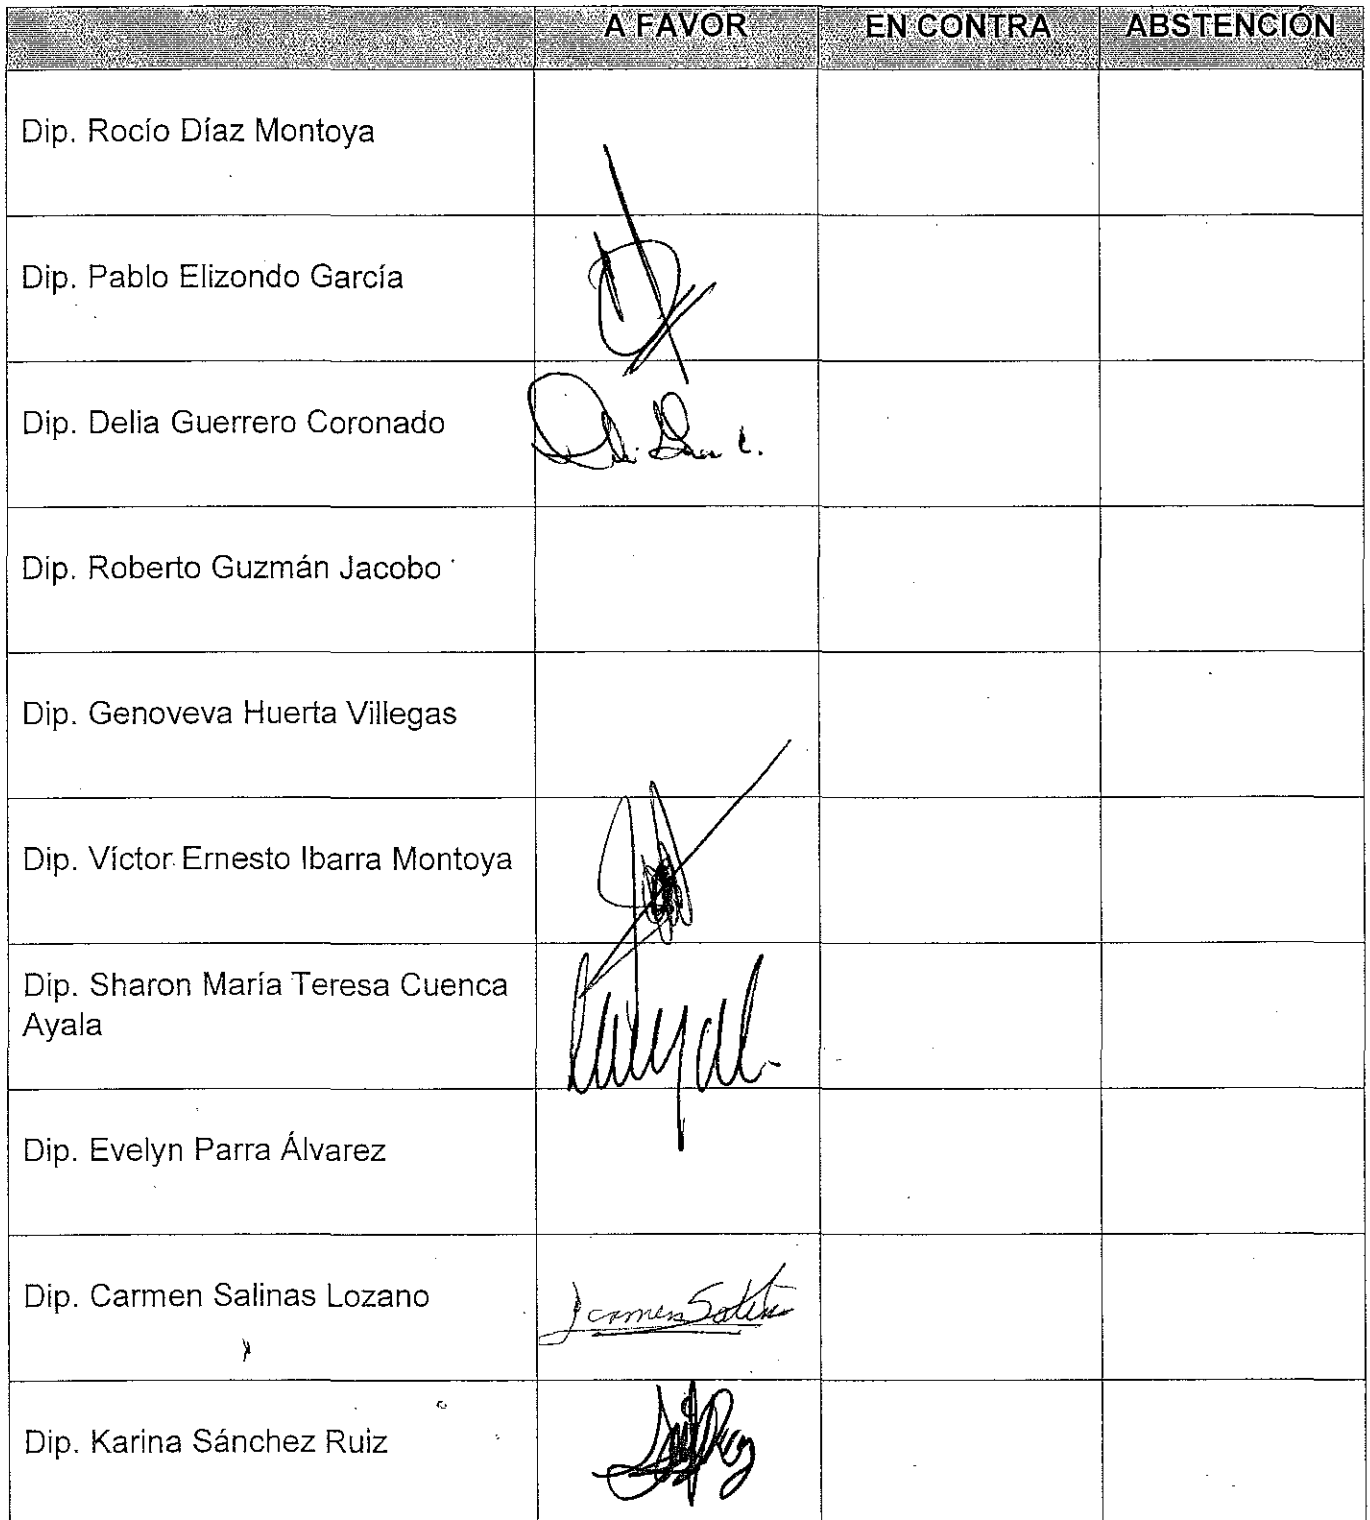 A FAVOR EN CONTRA ABSTENCIÓN
Dip. Rocío Díaz Montoya
Dip. Pablo Elizondo García
Dip. Delia Guerrero Coronado
Dip. Roberto Guzmán Jacobo
Dip. Genoveva Huerta Villegas
Dip. Víctor Ernesto Ibarra Montoya
Dip. Sharon María Teresa Cuenca
Ayala
Dip. Evelyn Parra Álvarez
Dip. Carmen Salinas Lozano
Dip. Karina Sánchez Ruiz